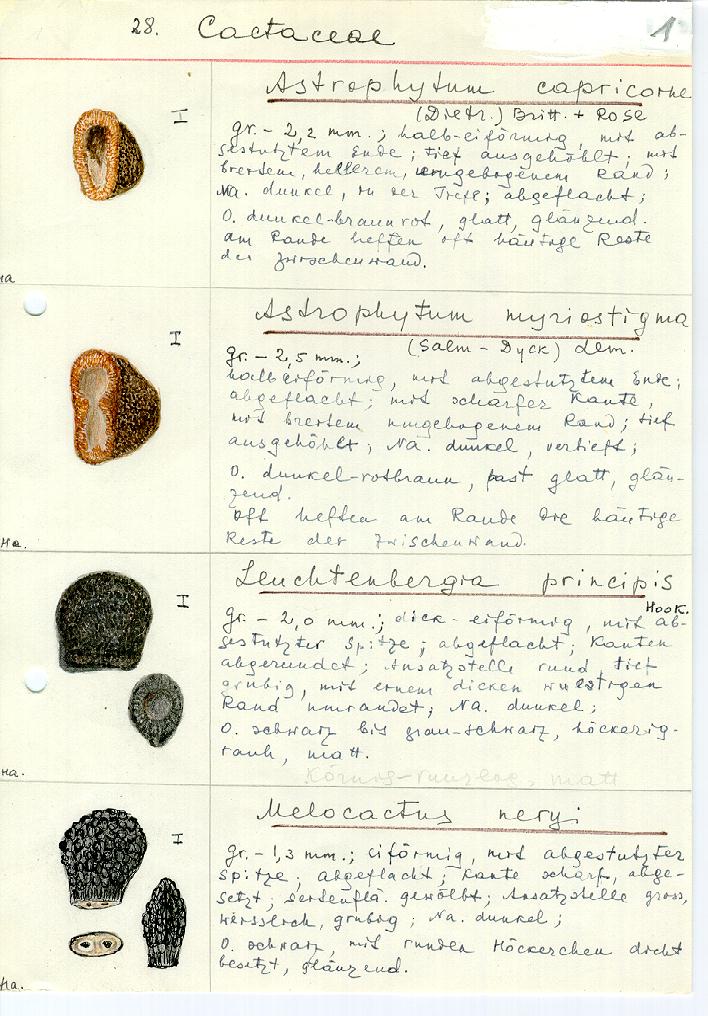 28. Cactaceae 1
Astrophytum capricorne
(Dietr.) Britt. + Rose
I
gr. - 2,2 mm.; halb-eiförmig, mit ab-
gestutztem Ende; tief ausgehöhlt; mit
breitem, hellerem, umgebogenem Rand;
Na. dunkel, in der Tiefe; abgeflacht;
O. dunkel-braunrot, glatt, glänzend.
am Rande heften oft häutige Reste
der Zwischenwand.
Na
Astrophytum myriostigma
(Salm - Dyck) Lem.
I
gr. - 2,5 mm.;
halbeiförmig, mit abgestutztem Ende;
abgeflacht; mit scharfer Kante,
mit breitem umgebogenem Rand; tief
ausgehöhlt; Na. dunkel, vertieft;
O. dunkel-rotbraun, fast glatt, glän-
zend.
Oft heften am Rande die häutige
Reste der Zwischenwand.
Na.
Leuchtenbergia principis
Hook.
I
gr. - 2,0 mm.; dick-eiförmig, mit ab-
gestutzter Spitze; abgeflacht; Kanten
abgerundet; Ansatzstelle rund, tief
grubig, mit einem dicken wulstigen
Rand umrandet; Na. dunkel;
O. schwarz bis grau-schwarz, höckerig-
rauh, matt.
Körnig-runzlig, matt
Na.
Melocactus neryi
I
gr. - 1,3 mm.; eiförmig, mit abgestutzter
Spitze; abgeflacht; Kante scharf, abge-
setzt; Seitenflä. gewölbt; Ansatzstelle gross,
weisslich, grubig; Na. dunkel;
O. schwarz, mit runden Höckerchen dicht
besetzt, glänzend.
Na.